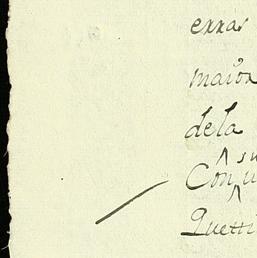 errar
maior
dela
su
Con u
Quetti